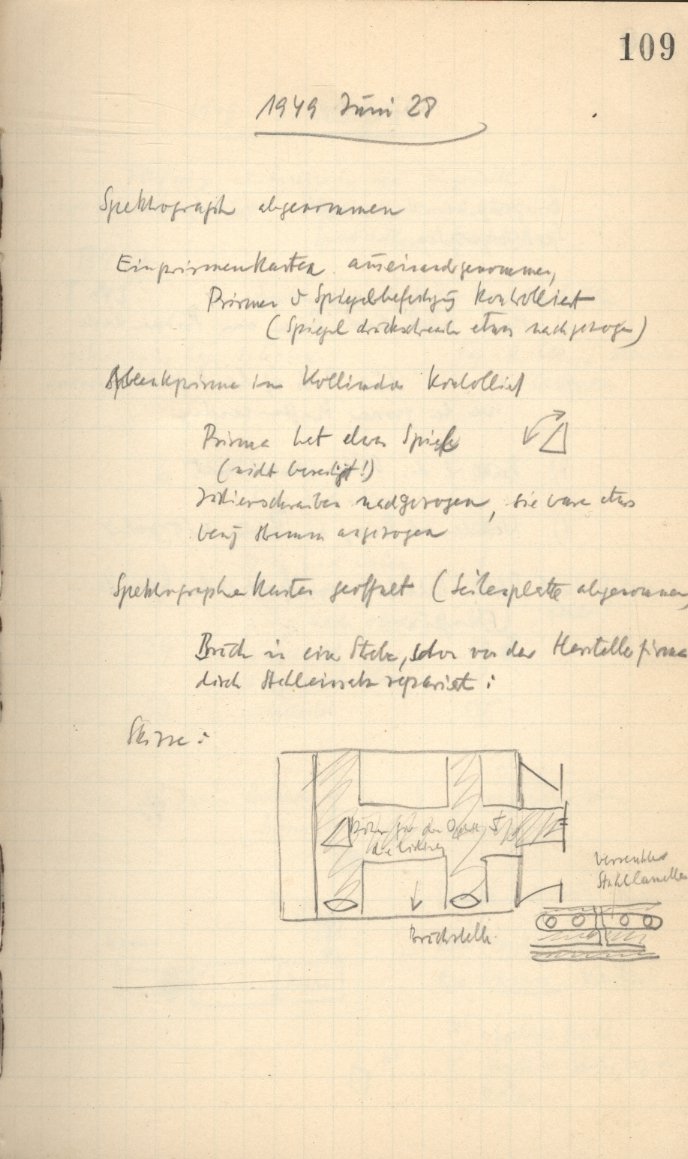 109
1949 Juni 28
Spektrograph abgenommen
Einprismenkasten auseinandgenommen,
Prismen & Spiegelbefestigg kontrolliert
(Spiegel druckschraube etwas nachgezogen)
Ablenkprisma im Kollimator kontrolliert
Prisma hat etwas Spiel
(nicht beseitigt!)
Justierschrauben nachgezogen, sie waren etwas
wenig stramm angezogen
Spektrographenkasten geöffnet (Seitenplatte abgenommen)
Bruch in eine Strebe, schon von der Herstellerfirma
durch Stahleinsatz repariert:
Skizze:
für den
versenkte
Stahllamellen
Bruchstelle